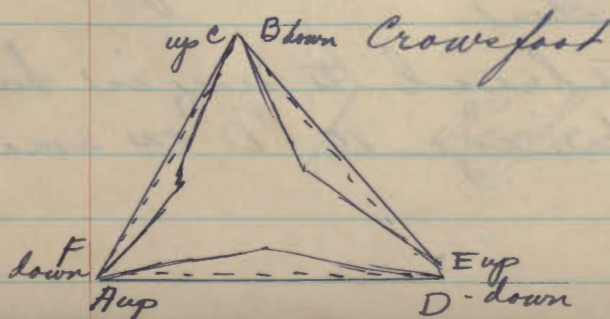 up C B down Crowsfoot
F
down E up
A up D - down